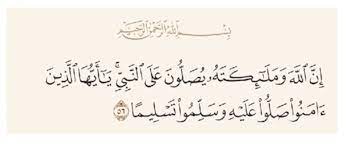 بِسْمِ اللَّهِ الرَّحْمَٰنِ الرَّحِيمِ
إِنَّ اللَّهَ وَمَلَٰٓئِكَتَهُۥ يُصَلُّونَ عَلَى النَّبِيِّ ۚ يَٰٓأَيُّهَا الَّذِينَ
ءَامَنُوا۟ صَلُّوا۟ عَلَيْهِ وَسَلِّمُوا۟ تَسْلِيمًا ۝٥٦